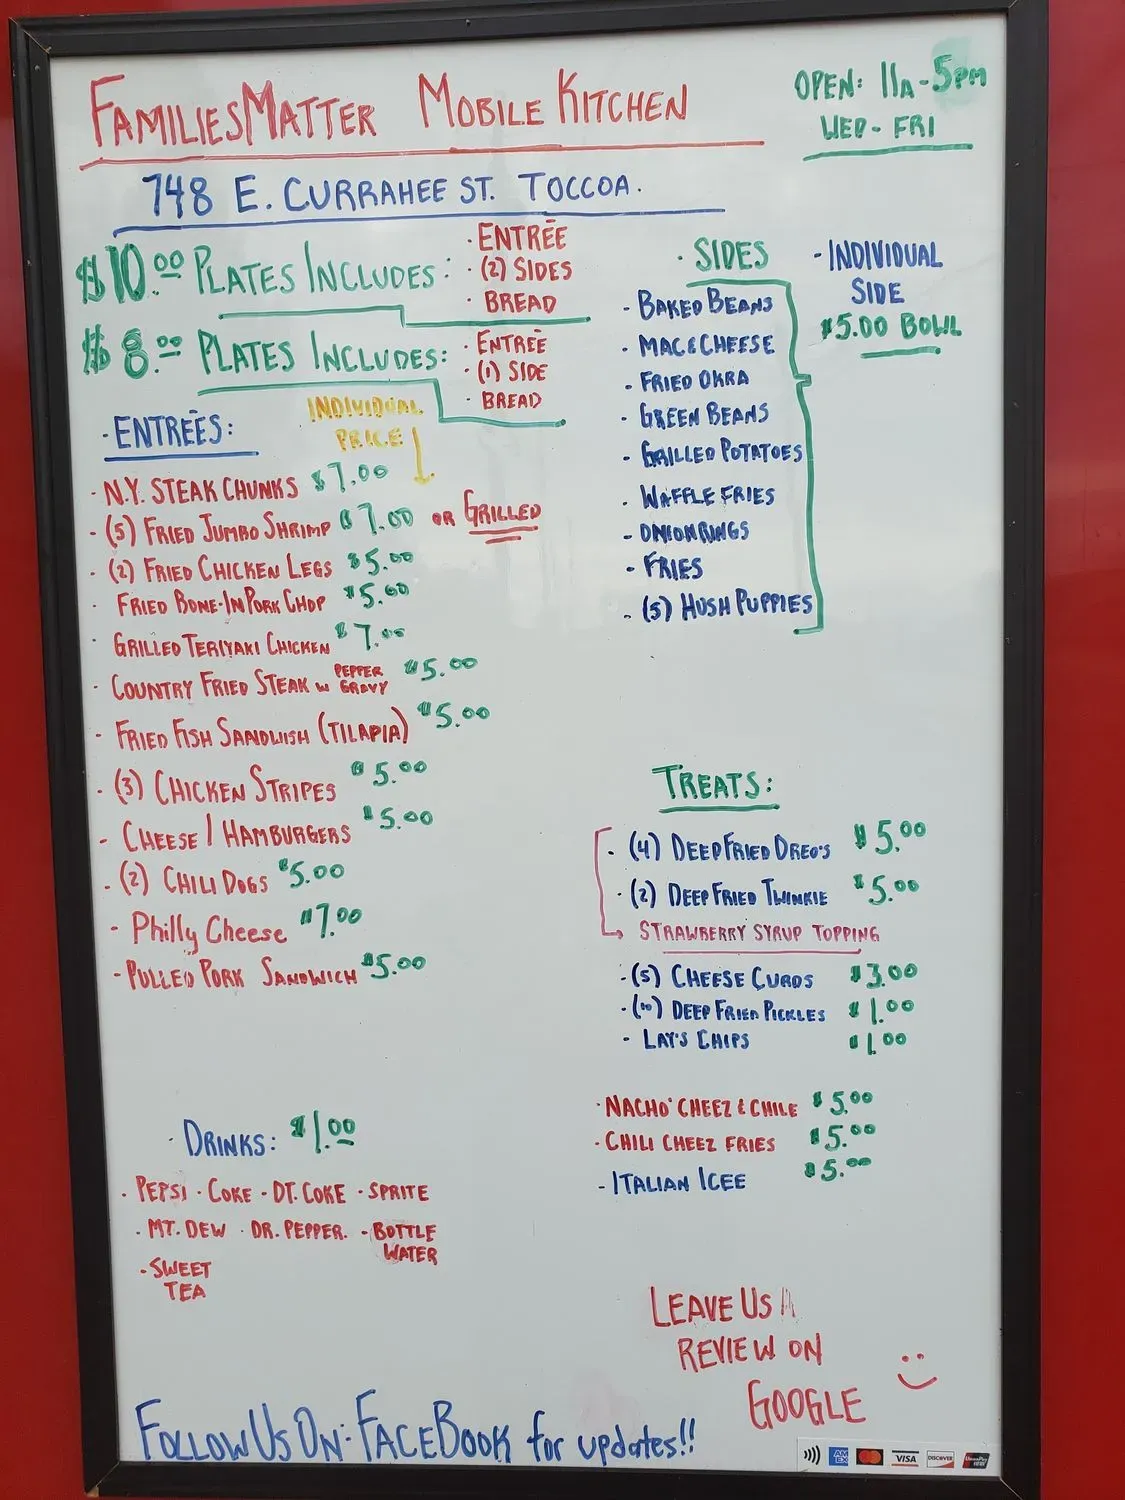 FAMILIESMATTER MOBILE KITCHEN
OPEN: 11A-5PM
WED-FRI
748 E. CURRAHEE ST. TOCCOA.
$10.00 PLATES INCLUDES:
· ENTRÉE
· (2) SIDES
· BREAD
$8.00 PLATES INCLUDES:
· ENTRÉE
· (1) SIDE
· BREAD
· ENTRÉES:
INDIVIDUAL
PRICE
· N.Y. STEAK CHUNKS $7.00
· (5) FRIED JUMBO SHRIMP $7.00 OR GRILLED
· (2) FRIED CHICKEN LEGS $5.00
· FRIED BONE-IN PORK CHOP $5.00
· GRILLED TERIYAKI CHICKEN $7.00
· COUNTRY FRIED STEAK W PEPPER GRAVY $5.00
· FRIED FISH SANDWISH (TILAPIA) $5.00
· (3) CHICKEN STRIPES $5.00
- CHEESE / HAMBURGERS $5.00
· (2) CHILI DOGS $5.00
- Philly Cheese $7.00
- PULLED PORK SANDWICH $5.00
· SIDES
- BAKED BEANS
· MAC & CHEESE
- FRIED OKRA
- GREEN BEANS
- GRILLED POTATOES
- WAFFLE FRIES
- ONION RINGS
- FRIES
- (5) HUSH PUPPIES
- INDIVIDUAL
SIDE
$5.00 BOWL
TREATS:
· (4) DEEP FRIED OREO'S $5.00
· (2) DEEP FRIED TWINKIE $5.00
STRAWBERRY SYRUP TOPPING
· (5) CHEESE CURDS $3.00
· (10) DEEP FRIED PICKLES $1.00
- LAY'S CHIPS $1.00
· NACHO' CHEEZ & CHILE $5.00
· CHILI CHEEZ FRIES $5.00
- ITALIAN ICEE $5.00
· DRINKS: $1.00
· PEPSI · COKE · DT. COKE · SPRITE
· MT. DEW · DR. PEPPER. · BOTTLE
WATER
· SWEET
TEA
LEAVE US A
REVIEW ON
GOOGLE
FOLLOW US ON: FACEBOOK for updates!!
AMEX VISA DISCOVER UnionPay